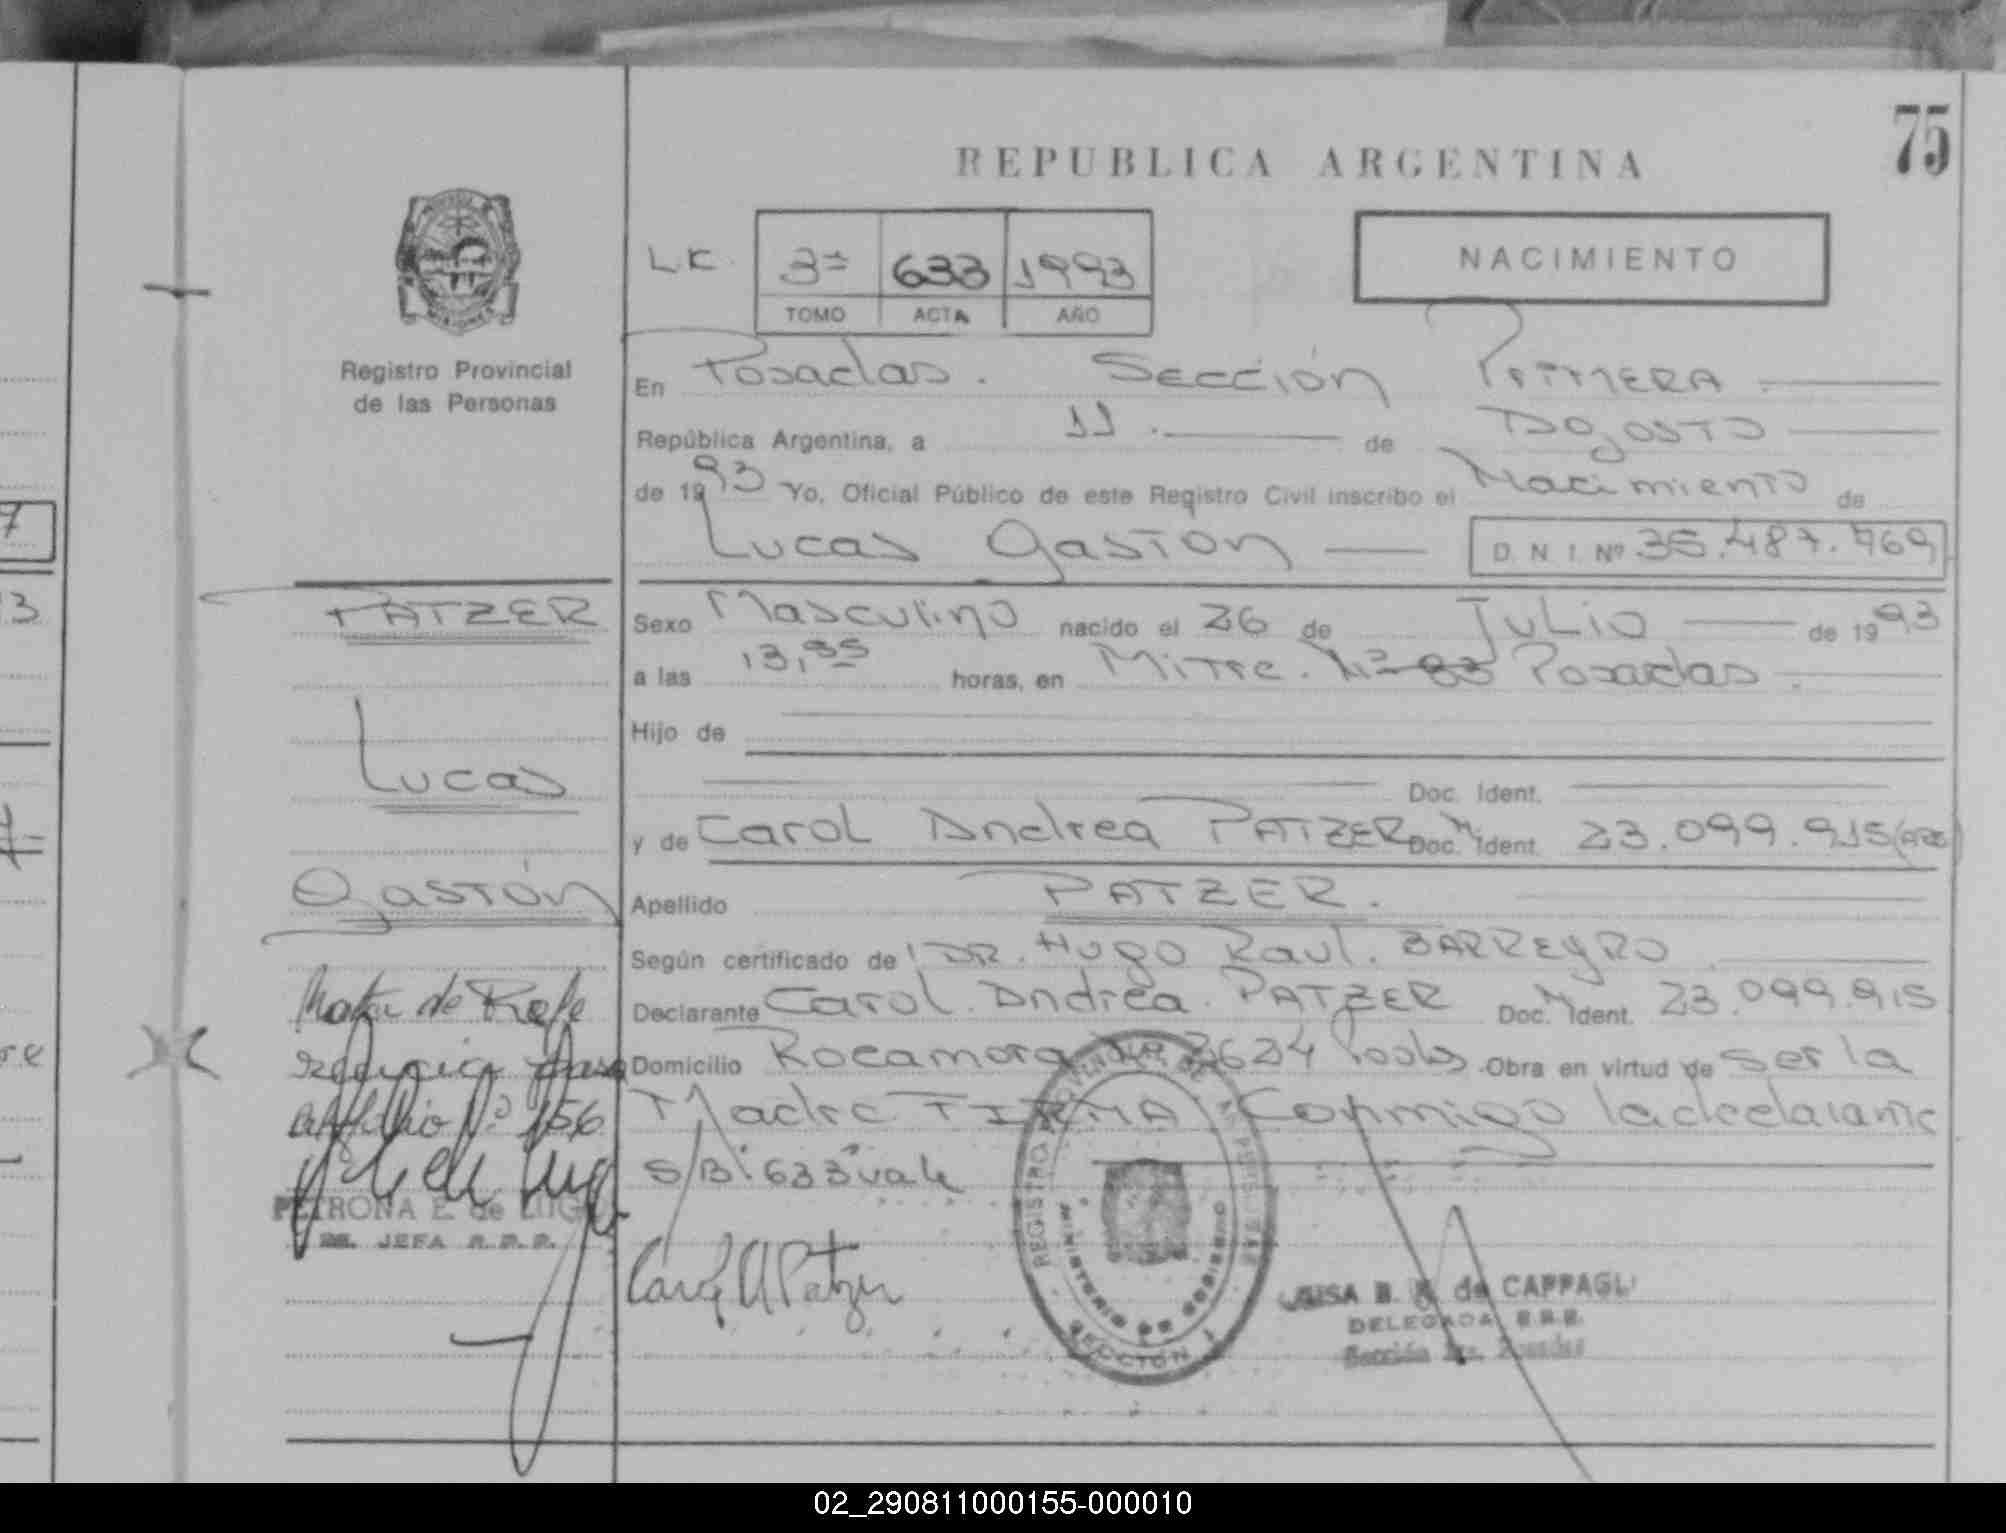 75
REPUBLICA ARGENTINA
NACIMIENTO
L.C. 3ª 633 1993
TOMO ACTA AÑO
MISIONES
Registro Provincial
de las Personas
En Posadas. Sección PRIMERA
República Argentina, a 11. de Agosto
de 1993 Yo, Oficial Público de este Registro Civil inscribo el Nacimiento de
Lucas Gastón D.N.I. Nº 35.487.769
PATZER
Lucas
Gastón
Sexo Masculino nacido el 26 de Julio de 1993
a las 13,35 horas, en Mitre. Nº 83 Posadas.
Hijo de
Doc. Ident.
y de Carol Andrea PATZER Doc. Ident. 23.099.915
Apellido PATZER.
Según certificado de DR. Hugo Raul. BARREYRO
Declarante Carol. Andrea. PATZER Doc. Ident. 23.099.915
Domicilio Rocamora 2624 Obra en virtud de ser la
Madre FIRMA Conmigo la declarante
S/B: 633 vale
Nota de
Nº 156
PETRONA E. de LUGO
JEFA R.P.P.
Carol A Patzer
REGISTRO PROVINCIAL DE LAS PERSONAS
MINISTERIO DE GOBIERNO
SECCION 1
de CAPPAGLI
DELEGADA R.P.P.
Sección 1ra. Posadas
7
3
re
02_290811000155-000010